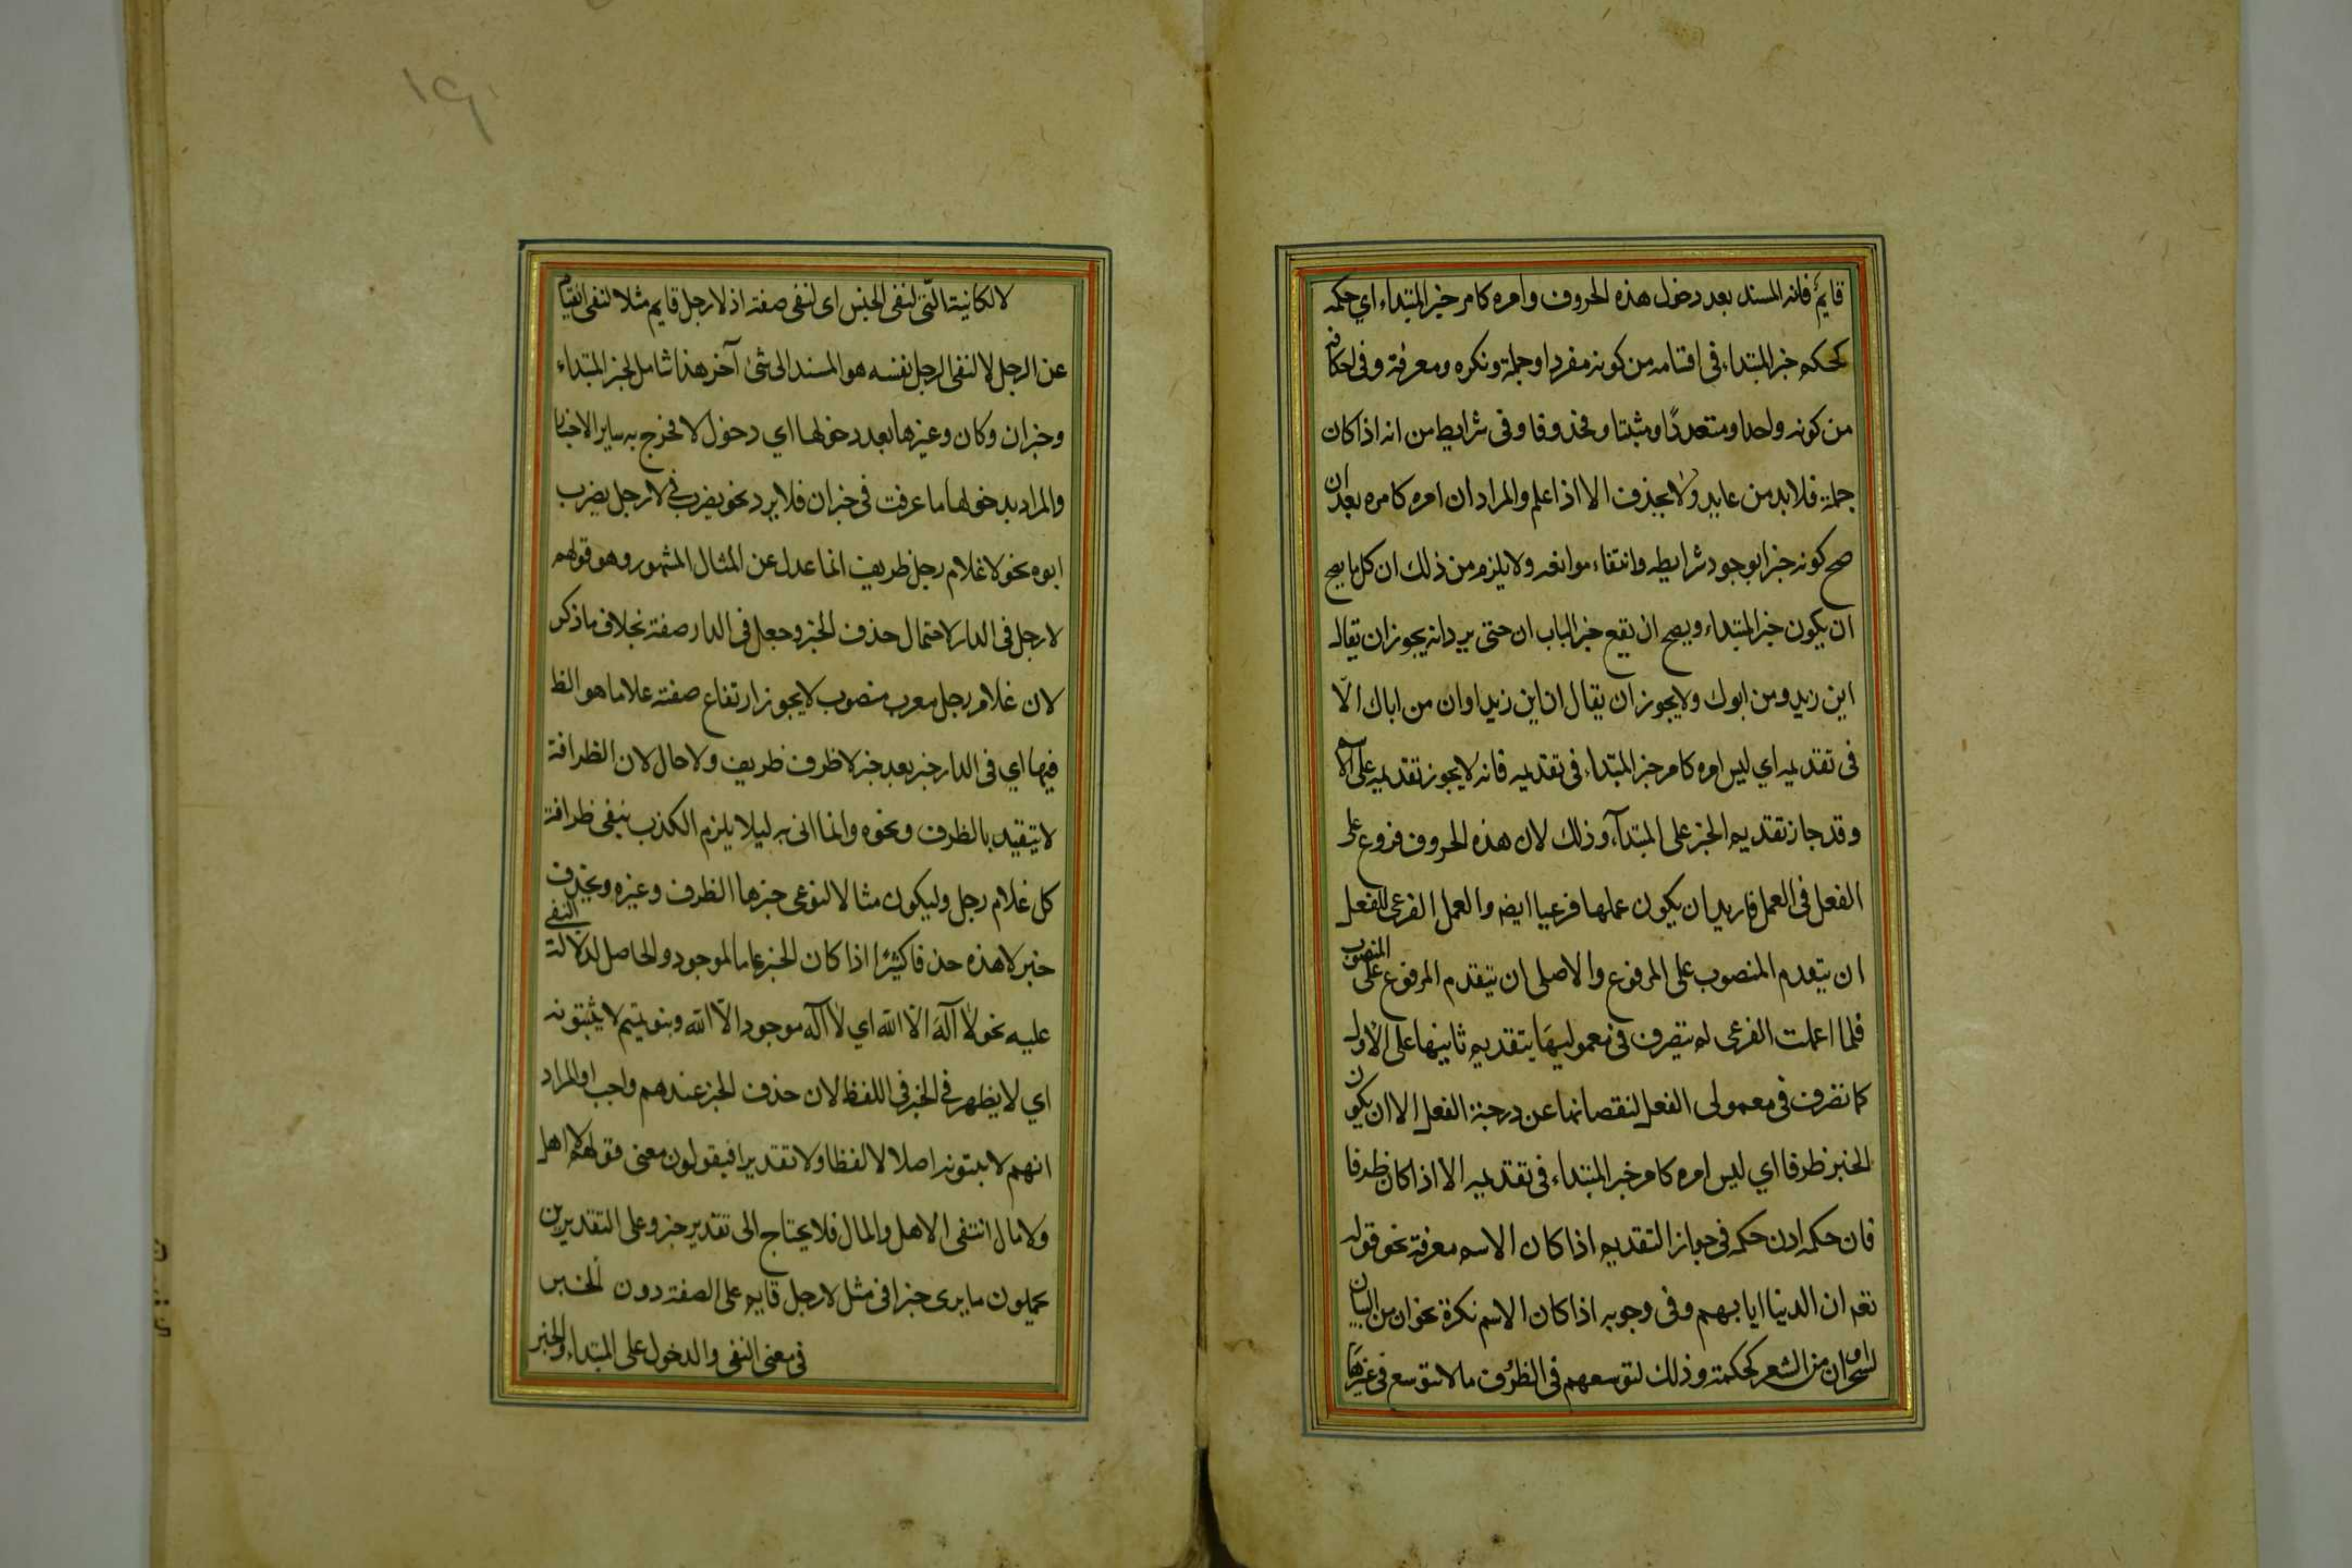 قايم فانه المسند بعد دخول هذه الحروف وامره كامر خبر المبتداء اي حكمه
كحكم خبر المبتداء في اقسامه من كونه مفردا وجملة ونكره ومعرفة وفي احكامه
من كونه واحدا ومتعددًا ومثبتا ومحذوفا وفي شرايط من انه اذا كان
جملة فلا بد من عايد ولا يحذف الا اذا علم والمراد ان امره كامره بعد ان
صح كونه خبرا بوجود شرايطه وانتفاء موانعه ولا يلزم من ذلك ان كل ما يصح
ان يكون خبر المبتداء ويصح ان يقع خبر الباب ان حتى يرد انه يجوز ان يقال
اين زيد ومن ابوك ولا يجوز ان يقال ان اين زيدا وان من اباك الّا
في تقديمه اي ليس امره كامر خبر المبتداء في تقديمه فانه لا يجوز تقديمه على الاسم
وقد جاز تقديم الخبر على المبتدآء وذلك لان هذه الحروف فروع على
الفعل في العمل فاريد ان يكون عملها فرعيا ايضه والعمل الفرعي للفعل
ان يتقدم المنصوب على المرفوع والاصلى ان يتقدم المرفوع على المنصوب
فلما اعملت الفرعى لم يتصرف في معموليهَا بتقديم ثانيها على الاول
كما تصرف في معمولى الفعل لنقصانها عن درجة الفعل الا ان يكون
الخبر ظرفا اي ليس امره كامر خبر المبتداء في تقديمه الا اذا كان ظرفا
فان حكمه اذن حكمه في جواز التقديم اذا كان الاسم معرفة نحو قوله
تعم ان الينا ايابهم وفي وجوبه اذا كان الاسم نكرة نحو ان من البيان
لسحرا وان من الشعر لحكمة وذلك لتوسعهم في الظرُوف ما لا يتوسع في غيرهَا
١٩
لا الكاينة الّتى لنفى الجنس اى لنفى صفته اذ لا رجل قايم مثلا لنفى القيام
عن الرجل لا لنفى الرجل نفسه هو المسند الى شئ آخر هذا شامل لخبر المبتداء
وخبر ان وكان وغيرها بعد دخولها اي دخول لا فخرج به ساير الاخبار
والمراد بدخولها ما عرفت في خبر ان فلا يرد نحو يضرب في لا رجل يضرب
ابوه نحو لا غلام رجل ظريف انما عدل عن المثال المشهور وهو قولهم
لا رجل في الدار لاحتمال حذف الخبر وجعل في الدار صفة بخلاف ما ذكر
لان غلام رجل معرب منصوب لا يجوز ارتفاع صفته علاما هو الظ
فيها اي في الدار خبر بعد خبر لا ظرف ظريف ولا حال لان الظرافة
لا يتقيد بالظرف ونحوه وانما اتى به ليلا يلزم الكذب بنفى ظرافة
كل غلام رجل وليكون مثالا لنوعى خبرها الظرف وغيره ويحذف
خبر لا هذه حذفا كثيرًا اذا كان الخبر عاما كالموجود والحاصل لدلالة النفي
عليه نحو لَا آلهَ الّا اللّه اي لَا آله موجود الّا اللّه وبنو تميم لا يثبتونه
اي لا يظهر في الخبر في اللفظ لان حذف الخبر عندهم واجب او المراد
انهم لا يثبتونه اصلا لا لفظا ولا تقديرا فيقولون معنى قولهم لا اهل
ولا مال انتفى الاهل والمال فلا يحتاج الى تقدير خبر وعلى التقديرين
يحملون ما يرى خبرا في مثل لا رجل قايم على الصفة دون الخبر
في معنى النفى والدخول على المبتداء والخبر